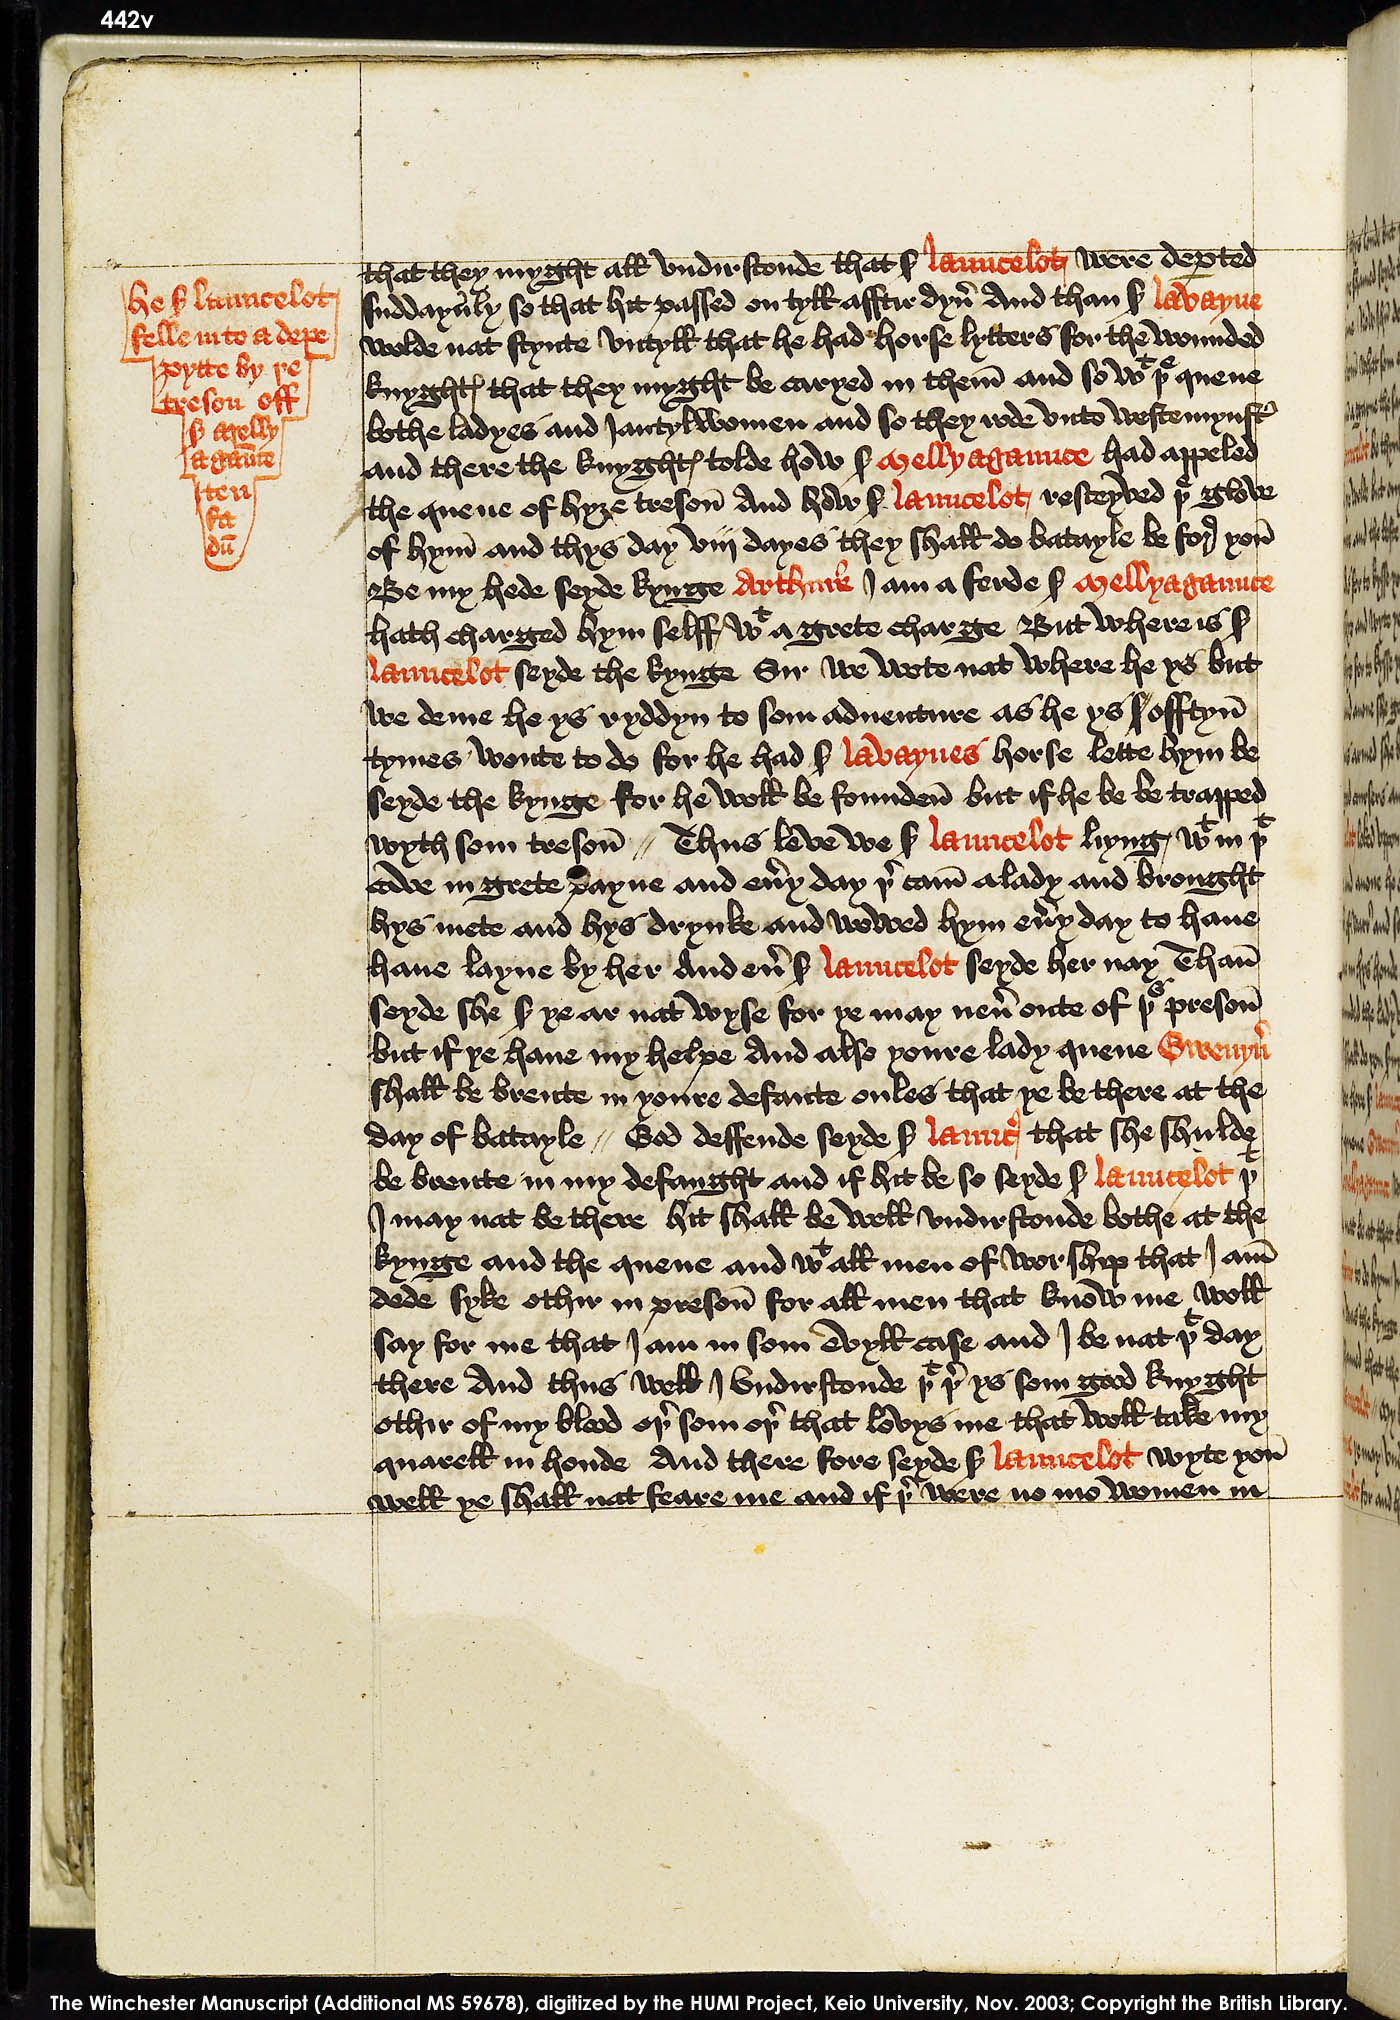 442v
he S launcelot
felle in to a depe
pytte by re
treson off
S Melly
agaūce
ten
fa
dū
that they myght all vndirstonde that S launcelot were depted
suddaynly so that hit passed on tyll afftir dyn̄ And than S lavayne
wolde nat stynte vntyll that he had horse lytters for the wounded
knyghtꝭ that they myght be caryed in them̄ and so wᵗ þᵉ quene
bothe ladyes and Jantylwomen and so they rode vnto westemynsṭ
and there the knyghtꝭ tolde how S Mellyagaunce had appeled
the quene of hyȝe treson̄ And how S launcelot resceyved þᵉ glove
of hym̄ and thys day viij dayes they shall do batayle be for yow̄
Be my hede seyde kynge Arthure I am a ferde S Mellyagaunce
hath charged hym selff wᵗ a grete charge But where is S
launcelot seyde the kynge Sir we wote nat where he ys but
we deme he ys ryddyn to som adventure as he ys offtyn̄
tymes wonte to do for he had S lavaynes horse lette hym be
seyde the kynge for he woll be founden̄ but if he be be trapped
wyth som treson̄ // Thus leve we S launcelot liyng wᵗ in þᵗ
cave in grete payne and eūy day þ̉ cam̄ a lady and brought
hys mete and hys drynke and wowed hym eūy day to haue
haue layne by her And eū S launcelot seyde her nay Than̄
seyde she S ye ar nat wyse for ye may neū oute of þˢ preson̄
but if ye haue my helpe And also youre lady quene Gwenyū
shall be brente in youre defaute onles that ye be there at the
day of batayle // God deffende seyde S launcꝭ that she shulde
be brente in my defaught and if hit be so seyde S launcelot þᵗ
I may nat be there hit shall be well vndirstonde bothe at the
kynge and the quene and wᵗ all men of worship that I am̄
dede syke othir in preson̄ for all men that know me woll
say for me that I am in som evyll case and I be nat þᵗ day
there And thus well I vndirstonde þᵗ þ̉ ys som good knyght
othir of my blood oþ̉ som oþ̉ that lovys me that woll take my
quarell in honde And there fore seyde S launcelot wyte yow̄
well ye shall nat feare me and if þ̉ were no mo women in
The Winchester Manuscript (Additional MS 59678), digitized by the HUMI Project, Keio University, Nov. 2003; Copyright the British Library.